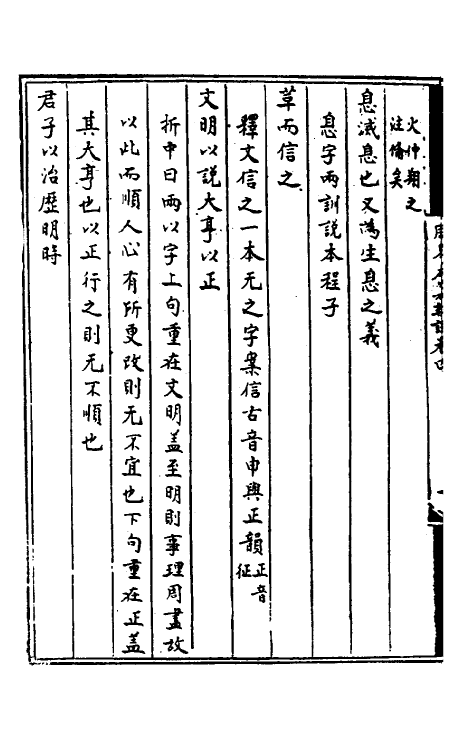 火仲翔之
注備矣
息滅息也又為生息之義
息字兩訓説本程子
革而信之
釋文信之一本无之字案信古音申與正韻正音征
文明以説大亨以正
折中曰兩以字上句重在文明盖至明則事理周盡故
以此而順人心有所更改則无不宜也下句重在正盖
其大亨也以正行之則无不順也
君子以治歷明時